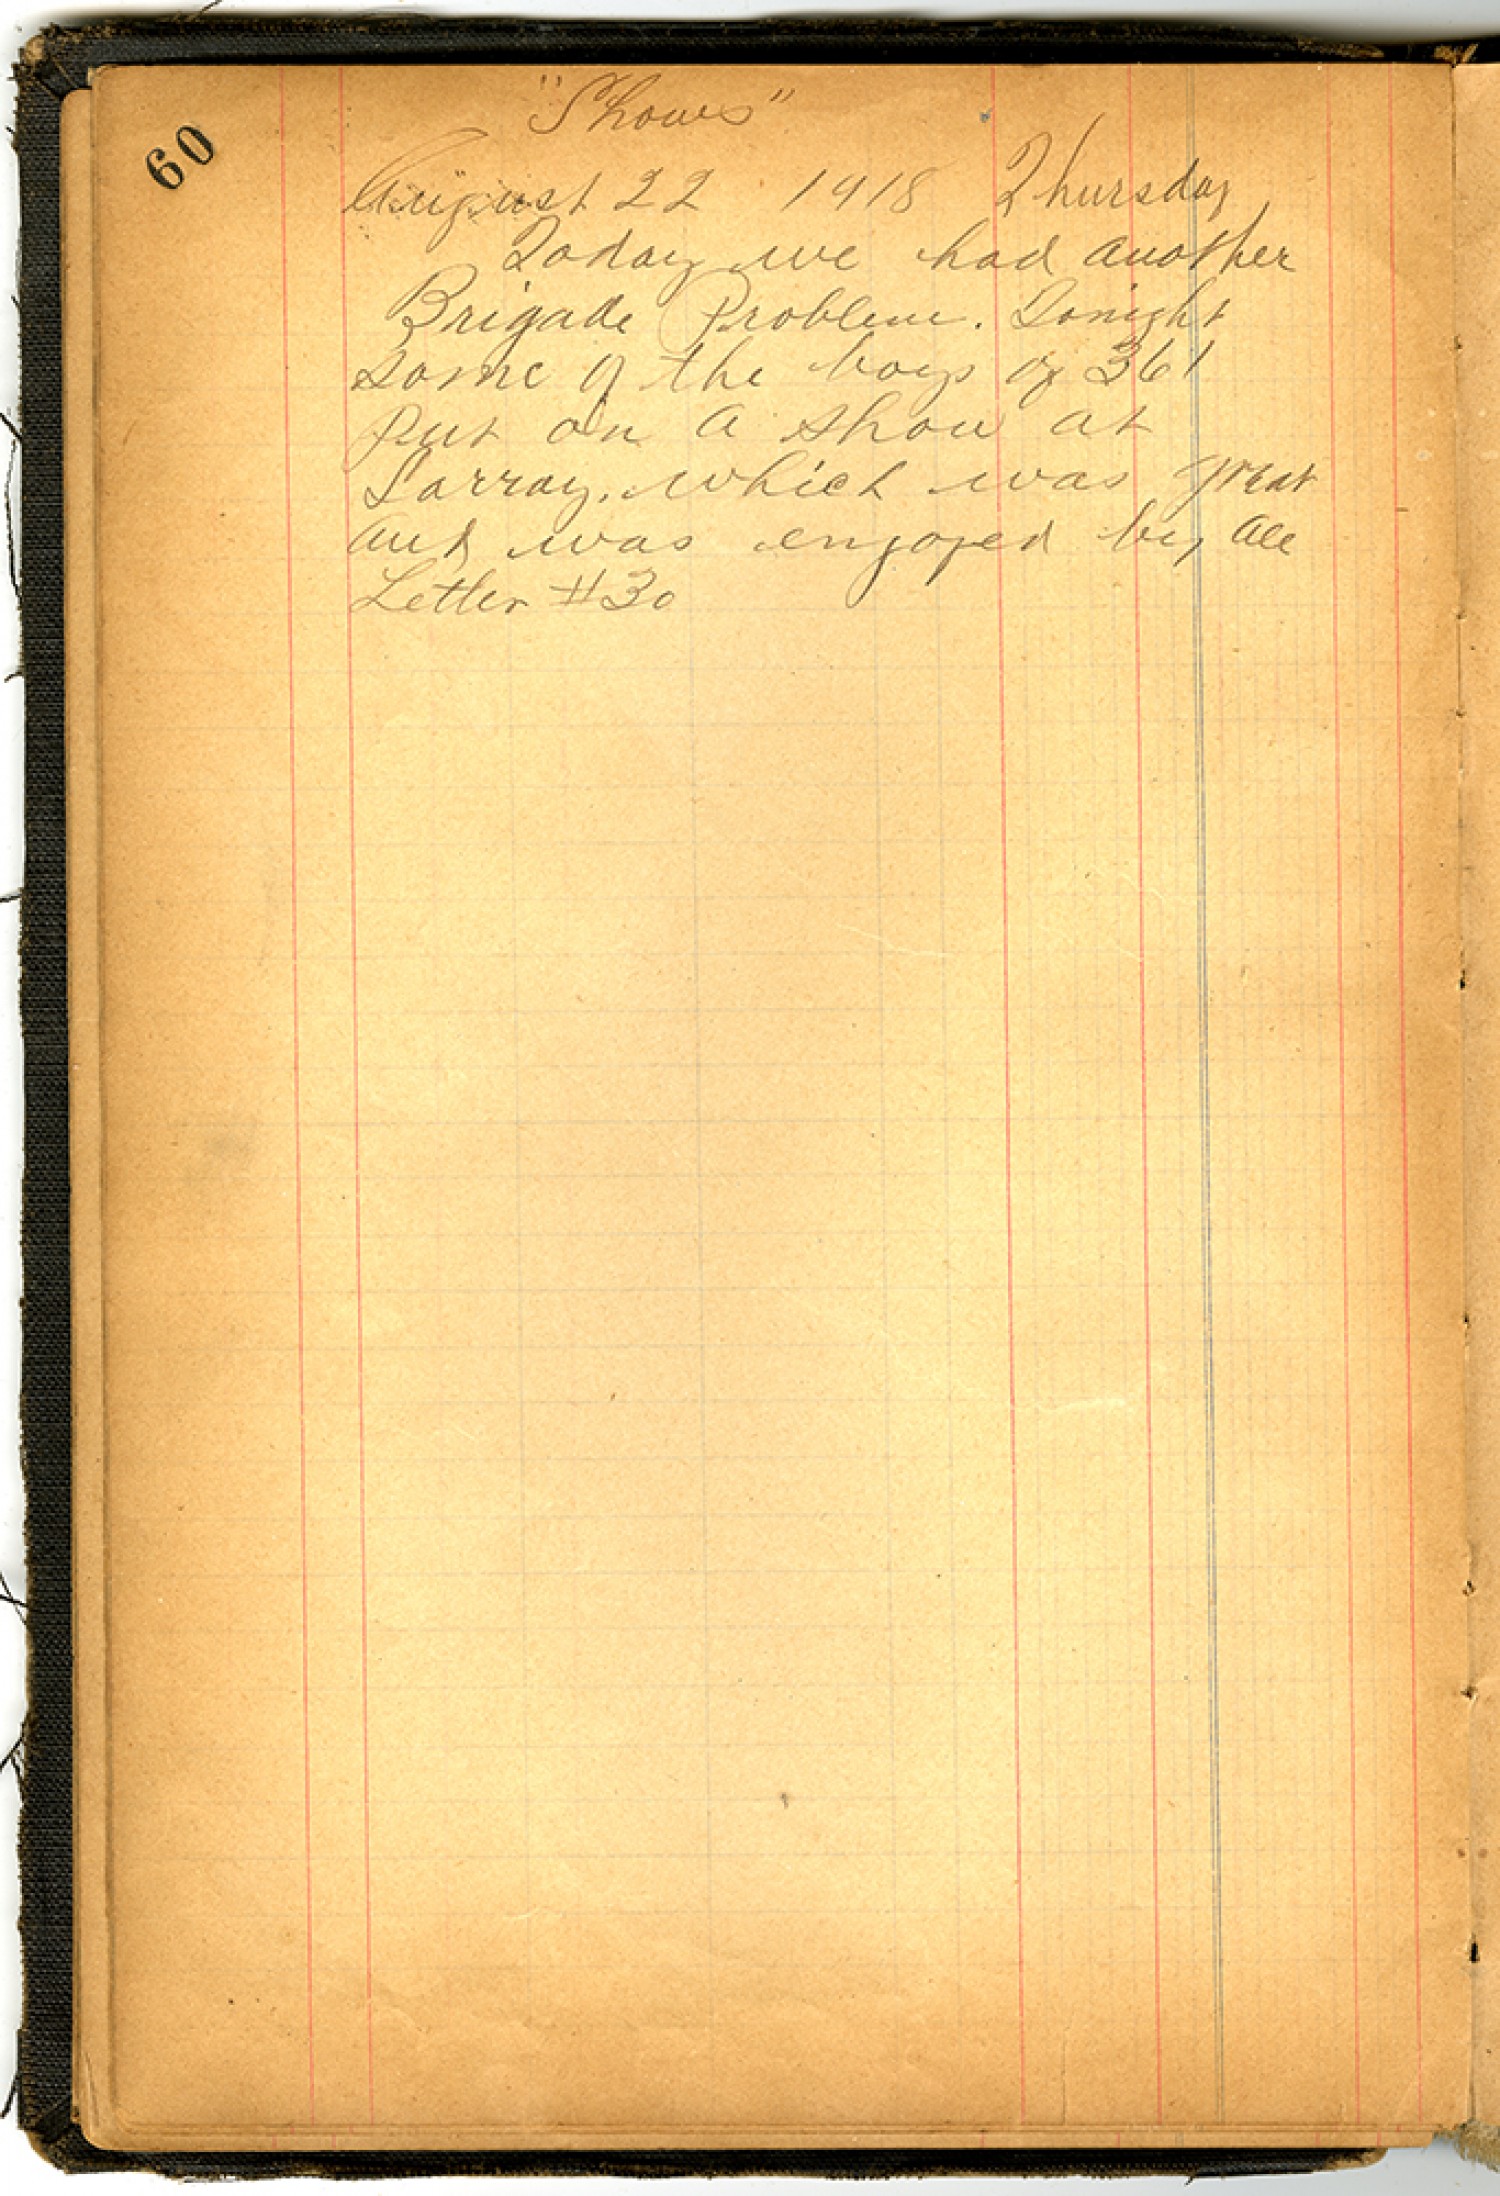 60
"Shows"
August 22 1918 Thursday
Today we had another
Brigade Problem. Tonight
some of the boys of 361
put on a show at
Sarray, which was great
and was enjoyed by all
Letter #30